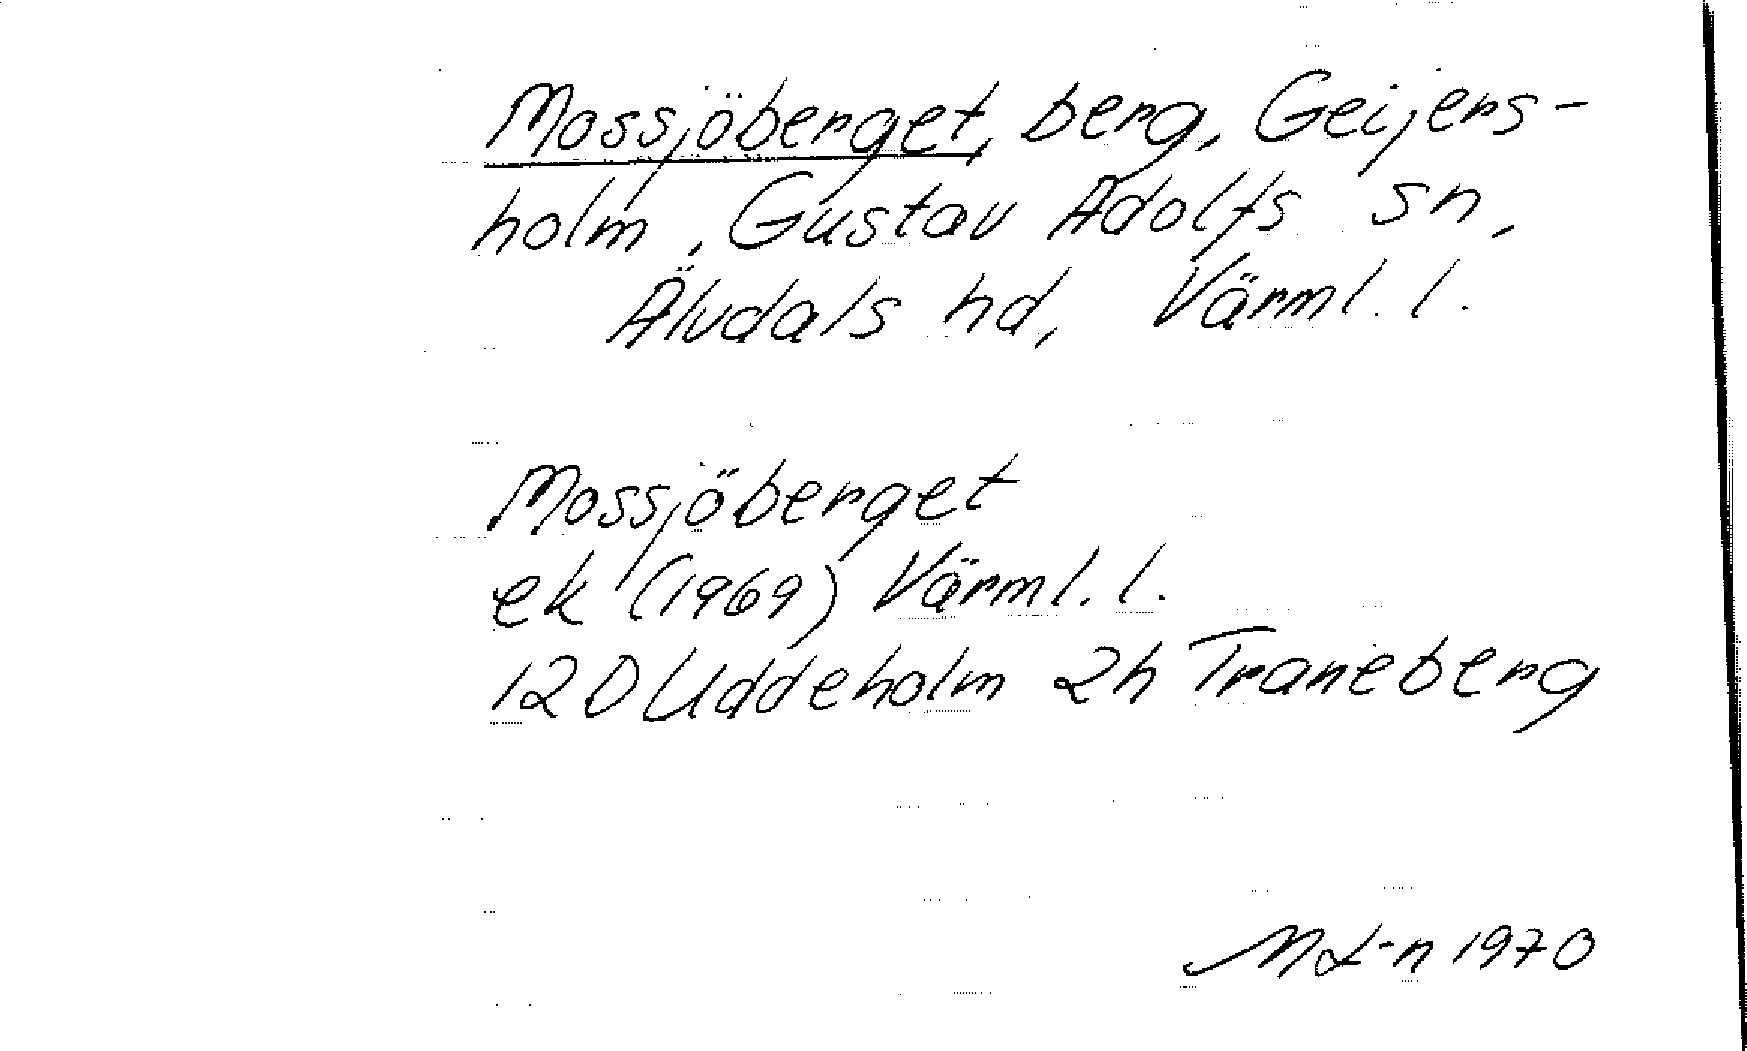 Mossjöberget, berg, Geijers-
holm, Gustav Adolfs sn,
Älvdals hd, Värml. l.
Mossjöberget
ek (1969) Värml. l.
12D Uddeholm 2h Traneberg
M L-n 1970